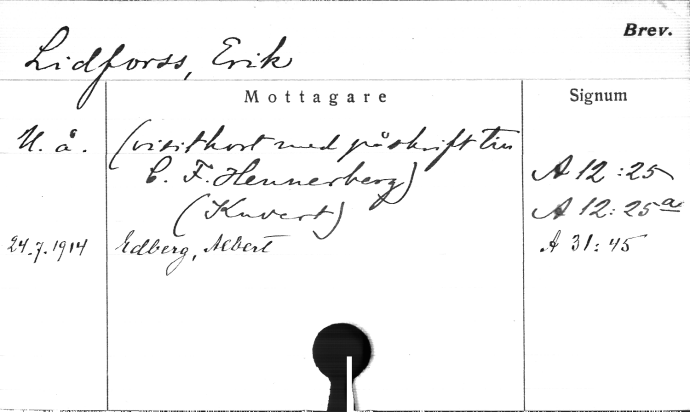 Brev.
Lidforss, Erik
Mottagare Signum
U. å. (visitkort med påskrift till
C. F. Hennerberg) A 12:25
(Kuvert) A 12:25a
24.7.1914 Edberg, Albert A 31:45